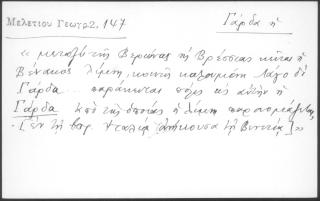 Μελετίου Γεωγρ 2, 147
Γάρδα ἡ
« μεταξὺ τῆς Βερώνας τῆς Βρέσσιας κεῖται ἡ
Βένακος λίμνη, κοινῆς καλουμένη Λάγο δὲ
Γάρδα... παράκειται πόλις εἰς αὐτὴν ἡ
Γάρδα ἀπὸ τῆς ὁποίας ἡ λίμνη παρονομάζεται,
[ἐν τῇ βορ. Ἰταλίᾳ τῇ Βενετίᾳ] »